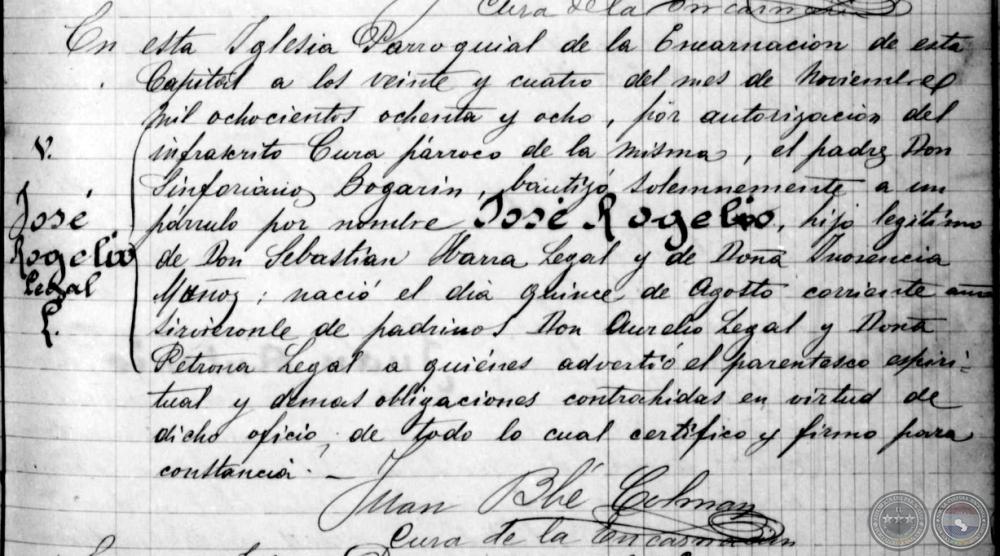 Cura de la Encarnacion
En esta Iglesia Parroquial de la Encarnacion de esta
Capital a los veinte y cuatro del mes de Noviembre
mil ochocientos ochenta y ocho, por autorizacion del
infrascrito Cura párroco de la misma, el padre Don
Sinforiano Bogarin, bautizó solemnemente a un
párvulo por nombre José Rogelio, hijo legítimo
de Don Sebastian Legal y de Doña Inosencia
Muñoz; nació el dia quince de Agosto corriente
sirvieronle de padrinos Don Aurelio Legal y Doña
Petrona Legal a quiénes advertió el parentesco espiri-
tual y demas obligaciones contrahidas en virtud de
dicho oficio, de todo lo cual certifico y firmo para
constancia. —
Juan Bbé Colman
Cura de la Encarnacion
V.
José
Rogelio
Legal
L.